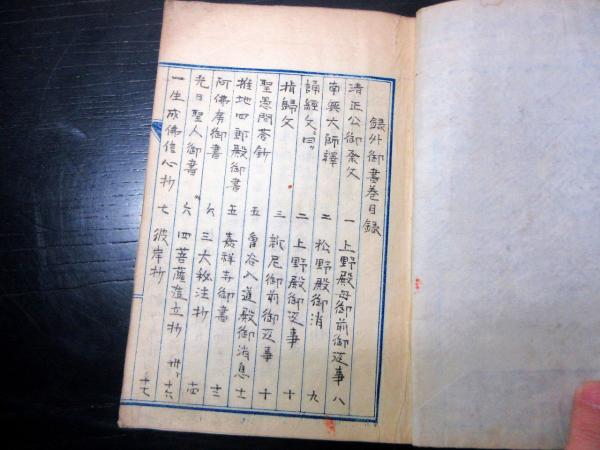 録外御書巻目録
清正公御奈文 一 上野殿母御前御返事 八
南嶽大師釋 二 松野殿御消 九
誦經文 二 上野殿御返事 十
指歸文 三 新尼御前御返事 十
聖愚問答鈔 五 曽谷入道殿御消息 十一
推地四郎殿御書 五 嘉祥寺御書 十三
阿佛房御書 六 三大秘法抄 十四
光日聖人御書 六 四菩薩造立抄 十六
一生成佛信心抄 七 彼岸抄 十七